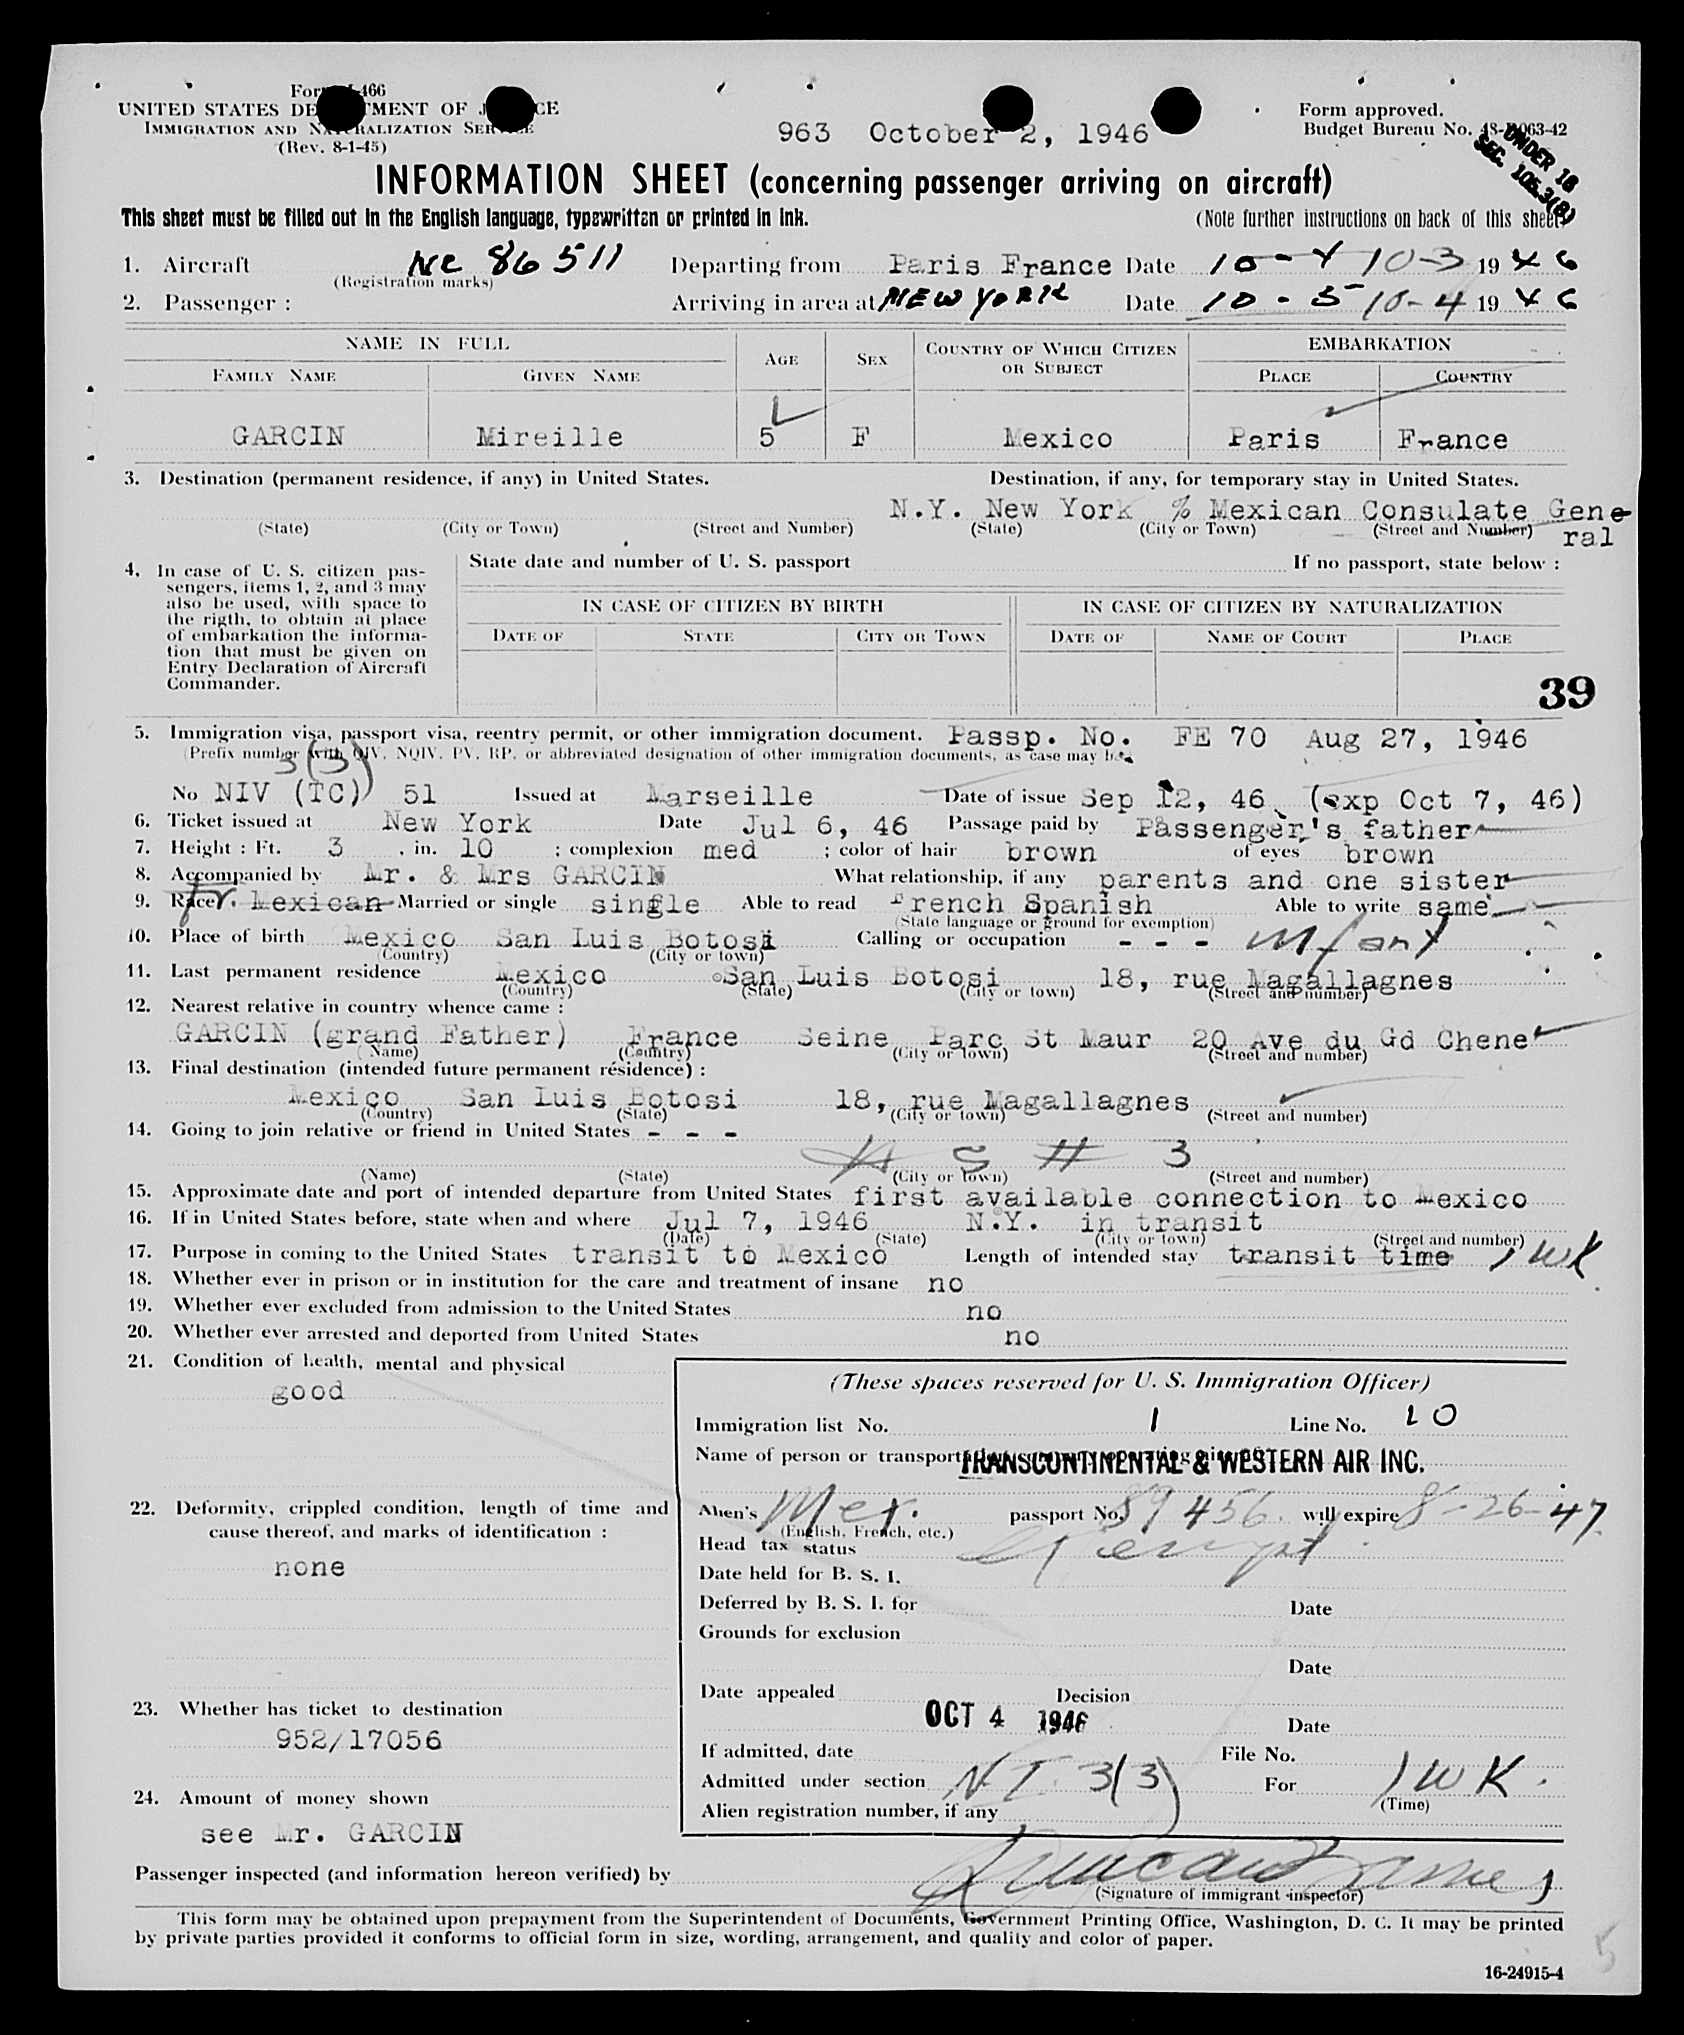 Form I-466
UNITED STATES DEPARTMENT OF JUSTICE
IMMIGRATION AND NATURALIZATION SERVICE
(Rev. 8-1-45)
963 October 2, 1946
Form approved.
Budget Bureau No. 43-R063-42
UNDER 18
SEC. 105.3(B)
INFORMATION SHEET (concerning passenger arriving on aircraft)
This sheet must be filled out in the English language, typewritten or printed in ink. (Note further instructions on back of this sheet)
1. Aircraft NC 86511 Departing from Paris France Date 10-4 10-3 1946
(Registration marks)
2. Passenger : Arriving in area at NEW YORK Date 10-5 10-4 1946
NAME IN FULL AGE SEX COUNTRY OF WHICH CITIZEN OR SUBJECT EMBARKATION
FAMILY NAME GIVEN NAME PLACE COUNTRY
GARCIN Mireille 5 F Mexico Paris France
3. Destination (permanent residence, if any) in United States. Destination, if any, for temporary stay in United States.
N.Y. New York % Mexican Consulate Gene
ral
(State) (City or Town) (Street and Number) (State) (City or Town) (Street and Number)
4. In case of U. S. citizen pas-
sengers, items 1, 2, and 3 may
also be used, with space to
the rigth, to obtain at place
of embarkation the informa-
tion that must be given on
Entry Declaration of Aircraft
Commander.
State date and number of U. S. passport If no passport, state below :
IN CASE OF CITIZEN BY BIRTH IN CASE OF CITIZEN BY NATURALIZATION
DATE OF STATE CITY OR TOWN DATE OF NAME OF COURT PLACE
39
5. Immigration visa, passport visa, reentry permit, or other immigration document. Passp. No. FE 70 Aug 27, 1946
(Prefix number with QIV, NQIV, PV, RP, or abbreviated designation of other immigration documents, as case may be.
3(3)
No NIV (TC) 51 Issued at Marseille Date of issue Sep 12, 46 (exp Oct 7, 46)
6. Ticket issued at New York Date Jul 6, 46 Passage paid by Passenger's father
7. Height : Ft. 3 , in. 10 ; complexion med ; color of hair brown of eyes brown
8. Accompanied by Mr. & Mrs GARCIN What relationship, if any parents and one sister
9. Race Fr. Mexican Married or single single Able to read French Spanish Able to write same
(State language or ground for exemption)
10. Place of birth Mexico San Luis Botosi Calling or occupation - - - Infant
(Country) (City or town)
11. Last permanent residence Mexico San Luis Botosi 18, rue Magallagnes
(Country) (State) (City or town) (Street and number)
12. Nearest relative in country whence came :
GARCIN (grand Father) France Seine Parc St Maur 20 Ave du Gd Chene
(Name) (Country) (City or town) (Street and number)
13. Final destination (intended future permanent résidence) :
Mexico San Luis Botosi 18, rue Magallagnes
(Country) (State) (City or town) (Street and number)
14. Going to join relative or friend in United States - - -
S # 3
(Name) (State) (City or town) (Street and number)
15. Approximate date and port of intended departure from United States first available connection to Mexico
16. If in United States before, state when and where Jul 7, 1946 N.Y. in transit
(Date) (State) (City or town) (Street and number)
17. Purpose in coming to the United States transit to Mexico Length of intended stay transit time 1 wk
18. Whether ever in prison or in institution for the care and treatment of insane no
19. Whether ever excluded from admission to the United States no
20. Whether ever arrested and deported from United States no
21. Condition of health, mental and physical
good
(These spaces reserved for U. S. Immigration Officer)
Immigration list No. 1 Line No. 10
Name of person or TRANSCONTINENTAL & WESTERN AIR INC.
22. Deformity, crippled condition, length of time and
cause thereof, and marks of identification :
none
Alien's Mex. passport No. 89456 will expire 8-26-47
(English, French, etc.)
Head tax status Exempt
Date held for B. S. I.
Deferred by B. S. I. for Date
Grounds for exclusion
Date
23. Whether has ticket to destination
952/17056
Date appealed Decision
OCT 4 1946 Date
If admitted, date File No.
Admitted under section 3(3) For 1 WK.
(Time)
Alien registration number, if any
24. Amount of money shown
see Mr. GARCIN
Passenger inspected (and information hereon verified) by
(Signature of immigrant inspector)
This form may be obtained upon prepayment from the Superintendent of Documents, Government Printing Office, Washington, D. C. It may be printed
by private parties provided it conforms to official form in size, wording, arrangement, and quality and color of paper.
16-24915-4
5